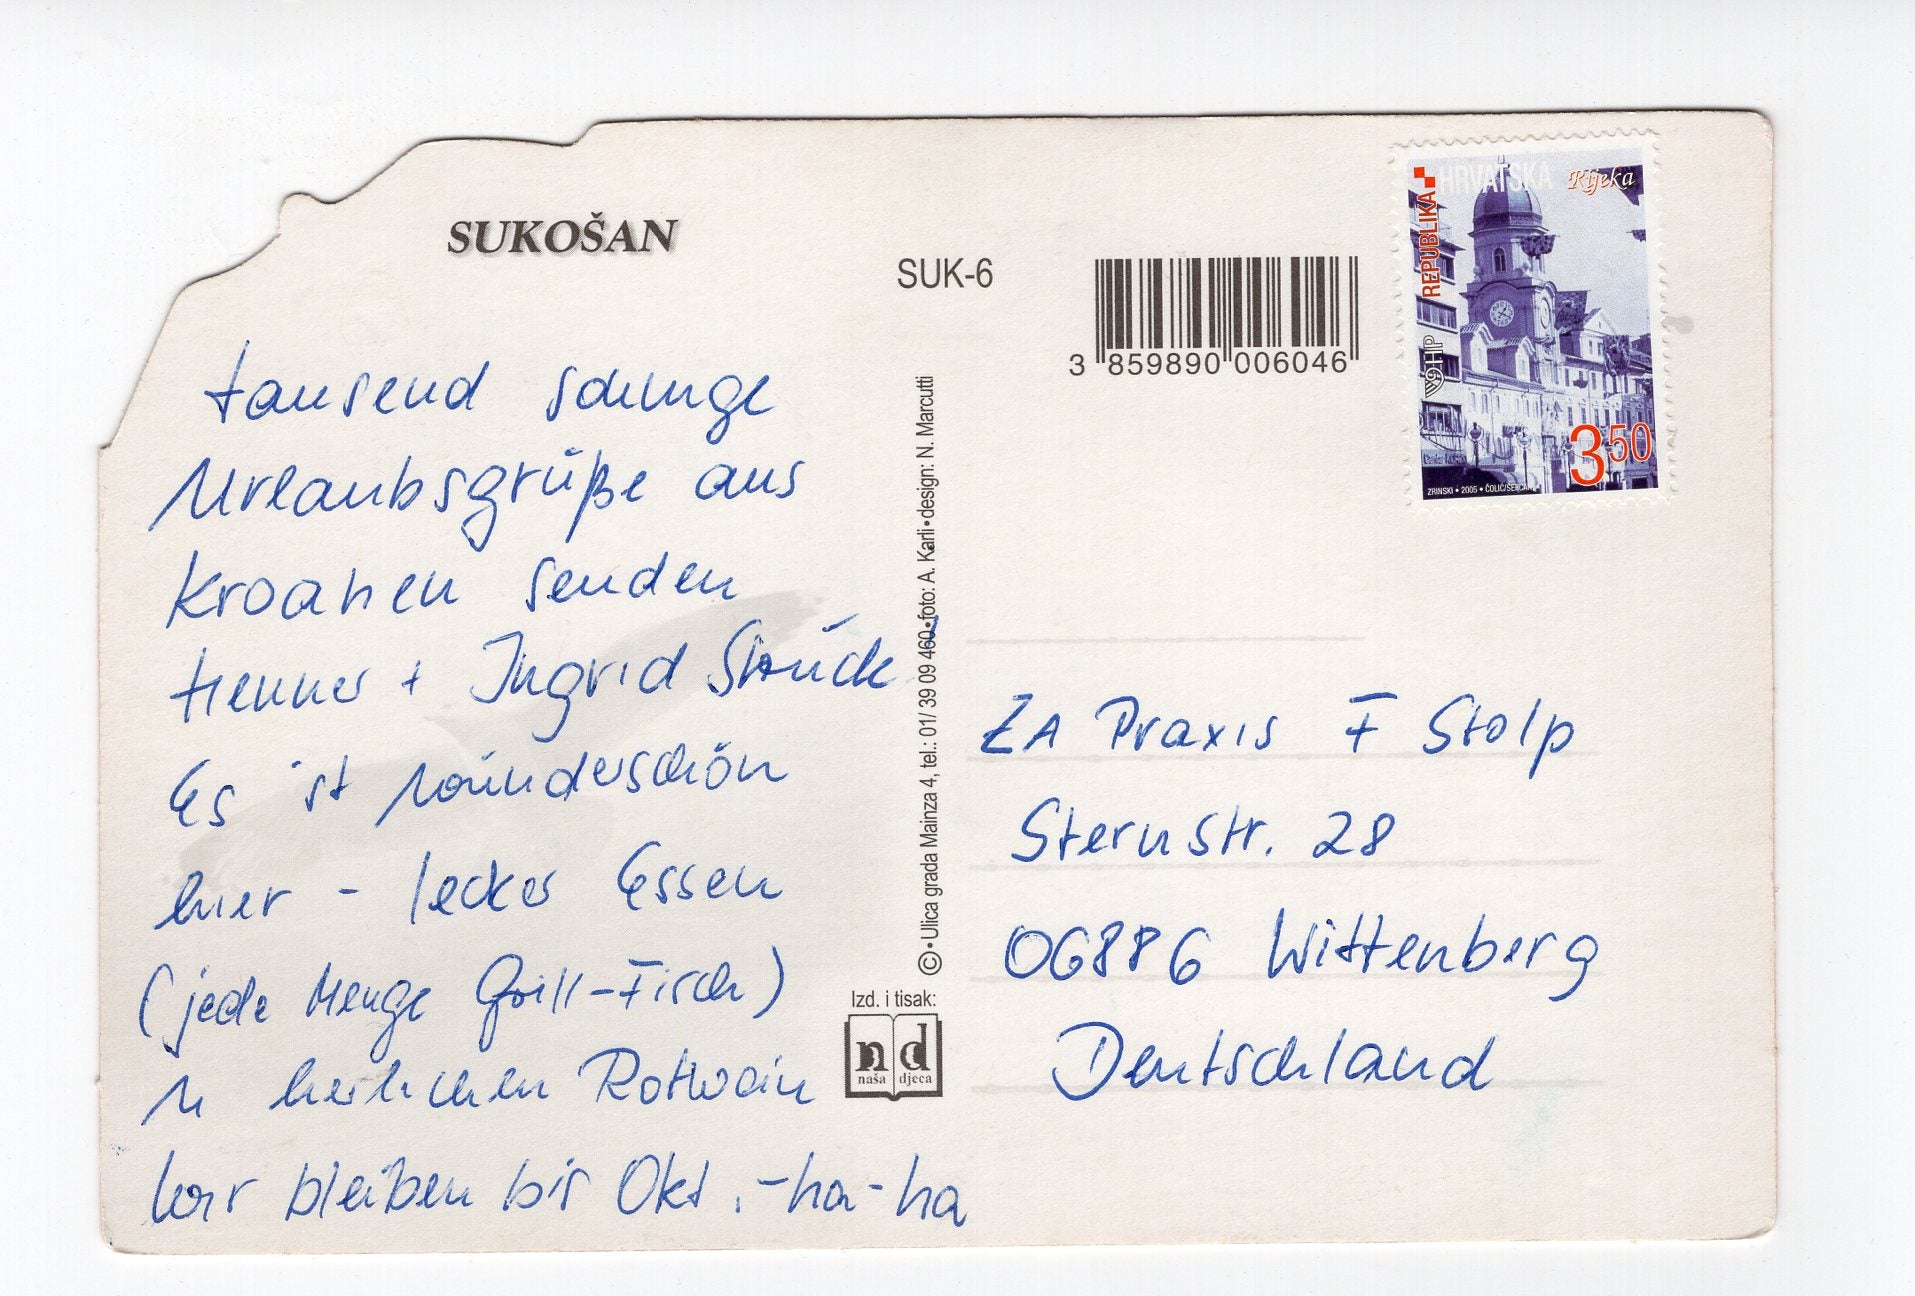 SUKOŠAN
tausend sonnige
Urlaubsgrüße aus
Kroatien senden
Henner + Ingrid Strück
Es ist wunderschön
hier - lecker Essen
(jede Menge Grill-Fisch)
u herrlichen Rotwein
wir bleiben bis Okt. -ha-ha
SUK-6
3 859890 006046
©•Ulica grada Mainza 4, tel.: 01/ 39 09 460•foto: A. Karli•design: N. Marcutti
Izd. i tisak:
nd
naša djeca
REPUBLIKA HRVATSKA
Rijeka
HP
350
ZRINSKI • 2005 •
ZA Praxis F Stolp
Sternstr. 28
06886 Wittenberg
Deutschland